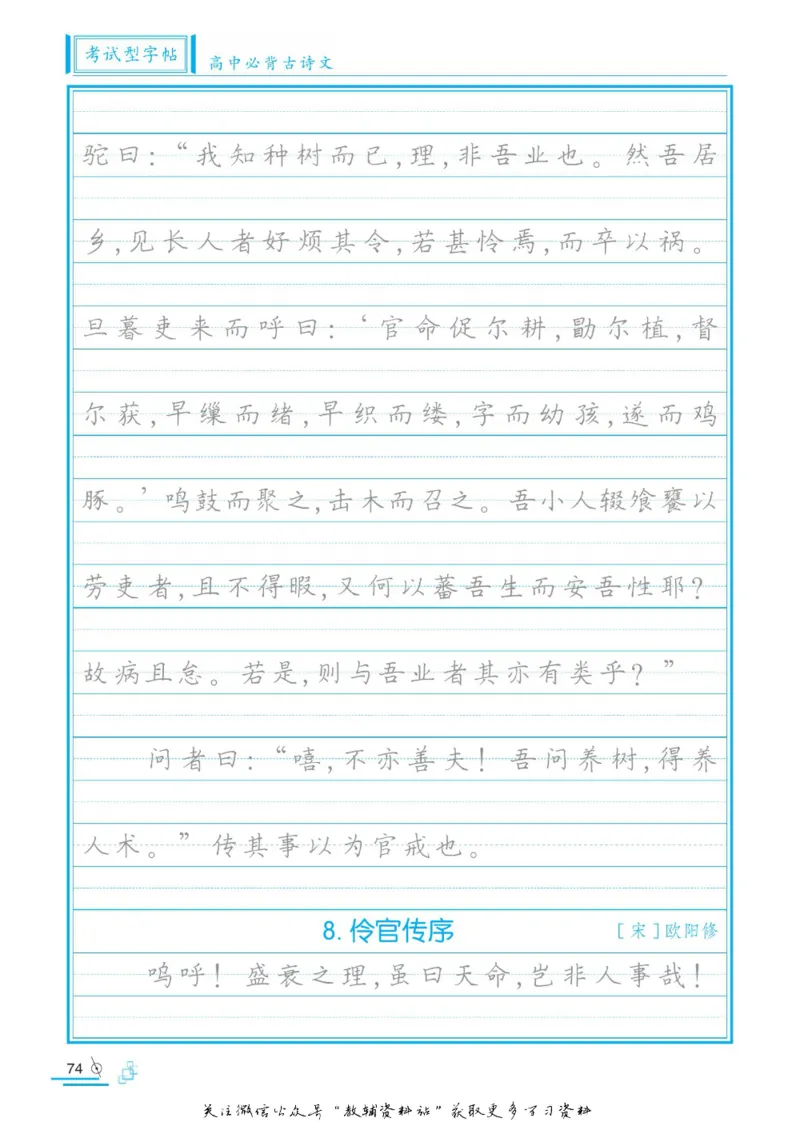 考试型字帖
高中必背古诗文
驼曰：“我知种树而已，理，非吾业也。然吾居
乡，见长人者好烦其令，若甚怜焉，而卒以祸。
旦暮吏来而呼曰：‘官命促尔耕，勖尔植，督
尔获，早缫而绪，早织而缕，字而幼孩，遂而鸡
豚。’鸣鼓而聚之，击木而召之。吾小人辍飧饔以
劳吏者，且不得暇，又何以蕃吾生而安吾性耶？
故病且怠。若是，则与吾业者其亦有类乎？”
问者曰：“嘻，不亦善夫！吾问养树，得养
人术。”传其事以为官戒也。
8. 伶官传序
［宋］欧阳修
呜呼！盛衰之理，虽曰天命，岂非人事哉！
74
关注微信公众号“教辅资料站”获取更多学习资料